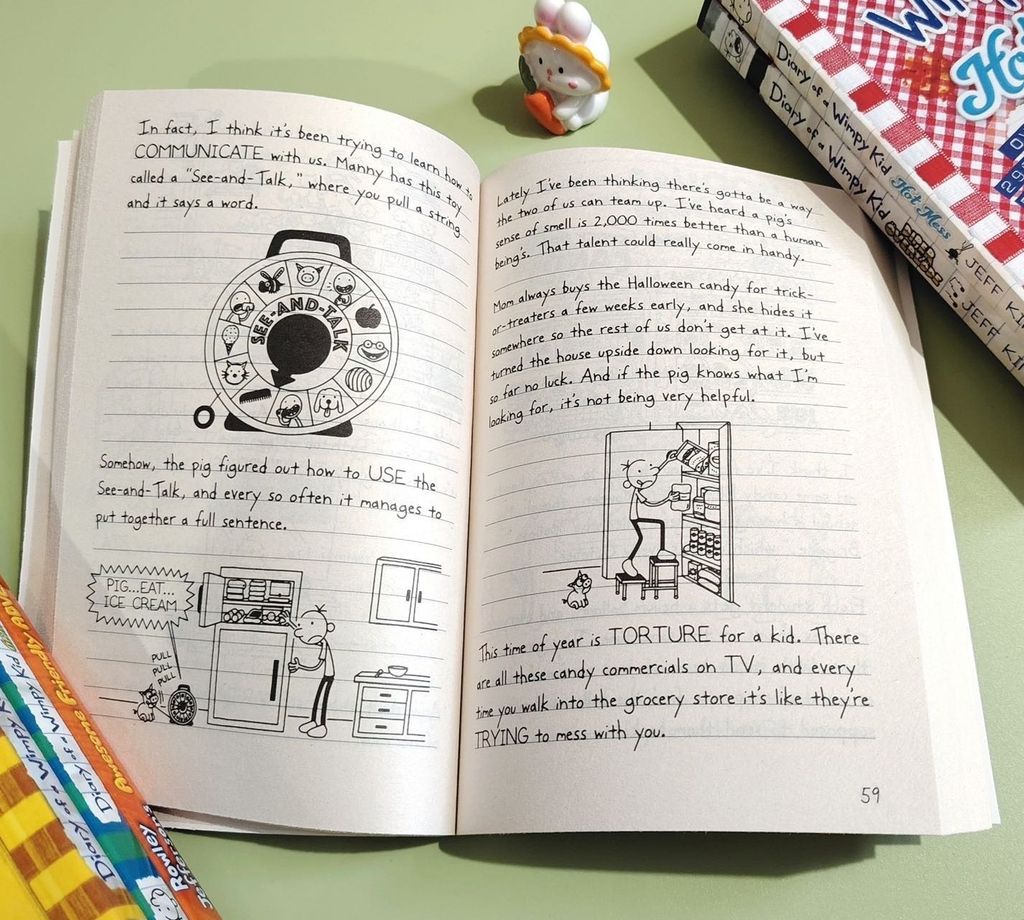 In fact, I think it's been trying to learn how to
COMMUNICATE with us. Manny has this toy
called a "See-and-Talk," where you pull a string
and it says a word.
SEE-AND-TALK
Somehow, the pig figured out how to USE the
See-and-Talk, and every so often it manages to
put together a full sentence.
PIG...EAT...
ICE CREAM
PULL
PULL
PULL
Lately I've been thinking there's gotta be a way
the two of us can team up. I've heard a pig's
sense of smell is 2,000 times better than a human
being's. That talent could really come in handy.
Mom always buys the Halloween candy for trick-
or-treaters a few weeks early, and she hides it
somewhere so the rest of us don't get at it. I've
turned the house upside down looking for it, but
so far no luck. And if the pig knows what I'm
looking for, it's not being very helpful.
This time of year is TORTURE for a kid. There
are all these candy commercials on TV, and every
time you walk into the grocery store it's like they're
TRYING to mess with you.
59
Diary of a Wimpy Kid Hot Mess JEFF
Diary of a Wimpy Kid DIPER JEFF
Awesome Friendly
Rowley
Diary of a Wimpy Kid
Diary of a Wimpy